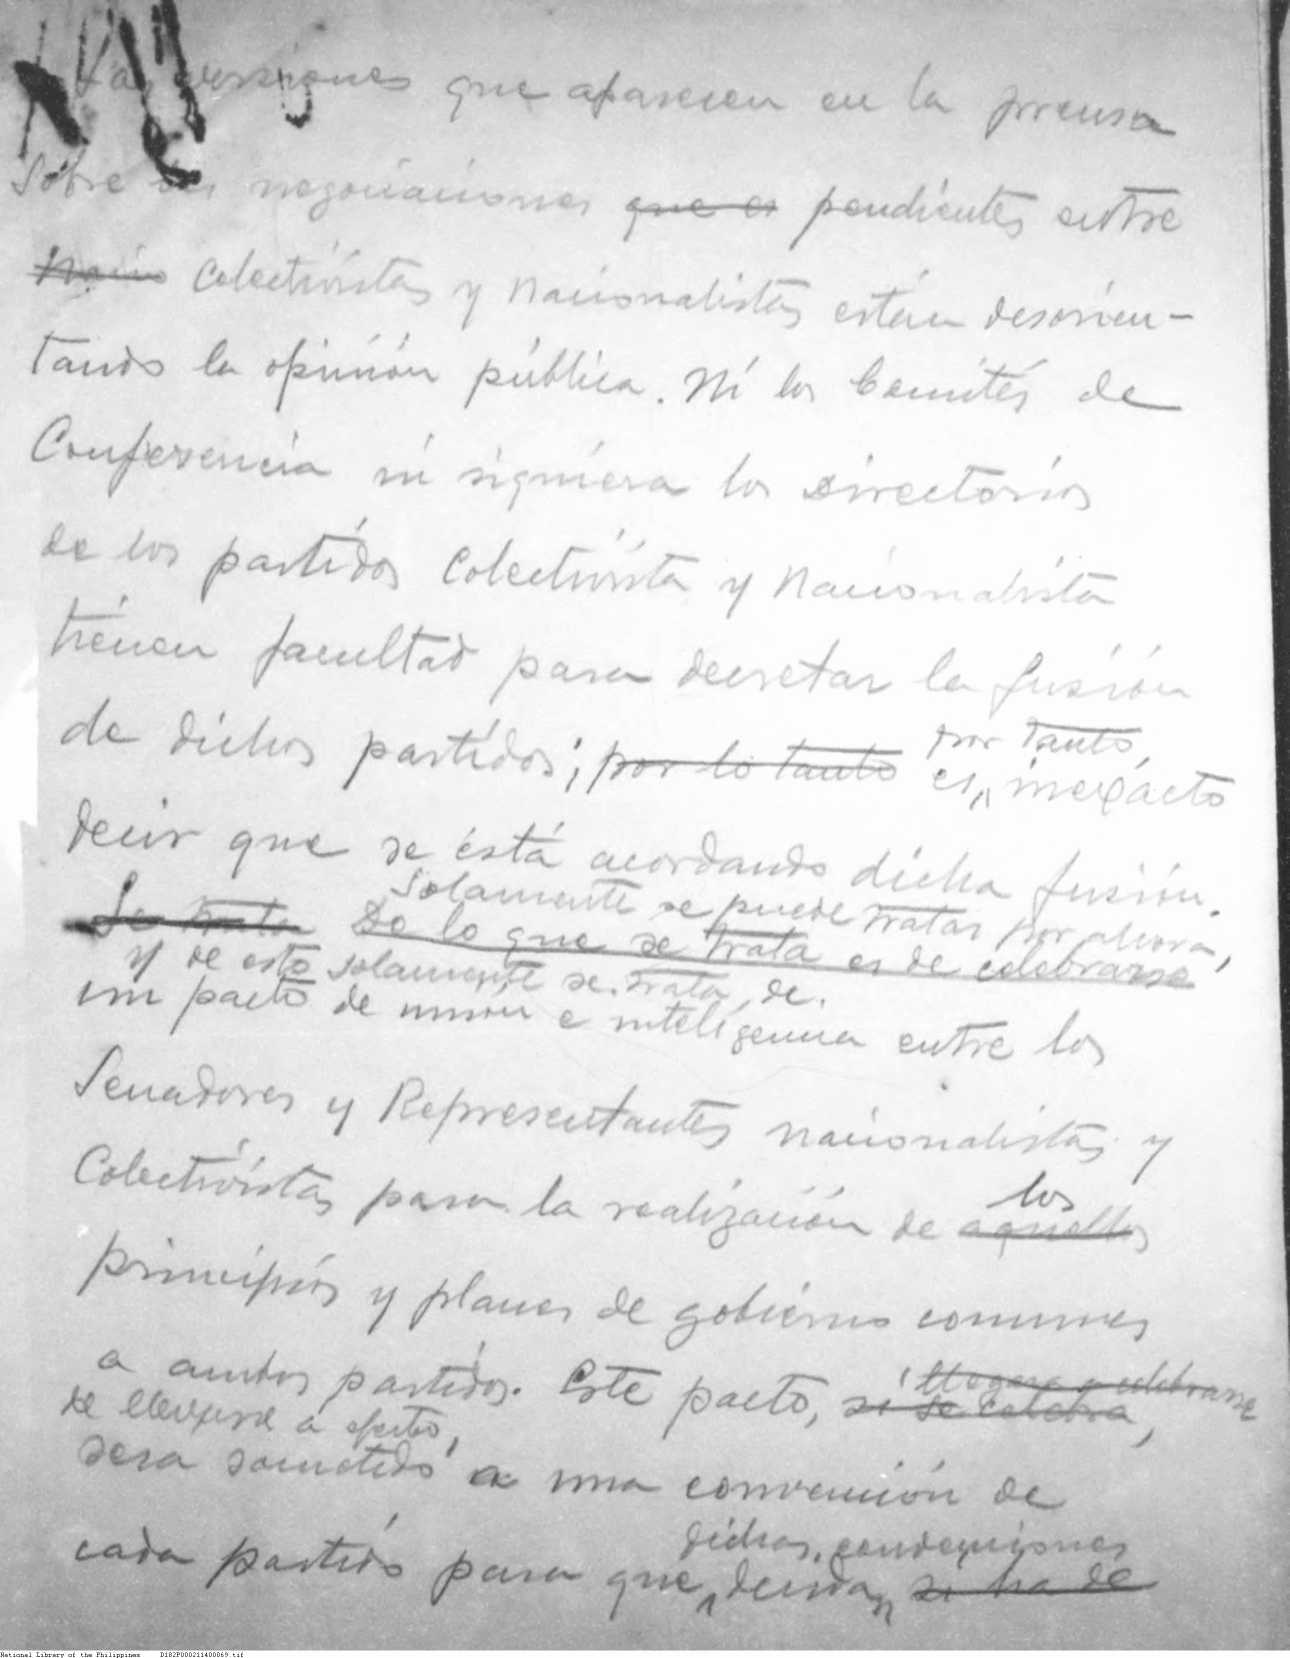 Las versiones que aparecen en la prensa
sobre las negociaciones que es pendientes entre
Colectivistas y Nacionalistas están desorien-
tando la opinión pública. Ni los Comités de
Conferencia ni siquiera los Directorios
de los partidos Colectivista y Nacionalista
tienen facultad para decretar la fusión
por tanto,
de dichos partidos; por lo tanto es, inexacto
decir que se está acordando dicha fusión.
solamente se puede tratar por ahora,
Se trata De lo que se trata es de celebrarse
y de esto solamente se trata, de.
un pacto de unión e inteligencia entre los
Senadores y Representantes nacionalistas y
Colectivistas para la realización de aquellos
los
principios y planes de gobierno comunes
a ambos partidos. Este pacto, si se celebra,
llegara a celebrarse
de llevarse a efecto,
sera sometido a una convención de
dichas convenciones
cada partido para que decidan si ha de
National Library of the Philippines D182P000211400069.tif